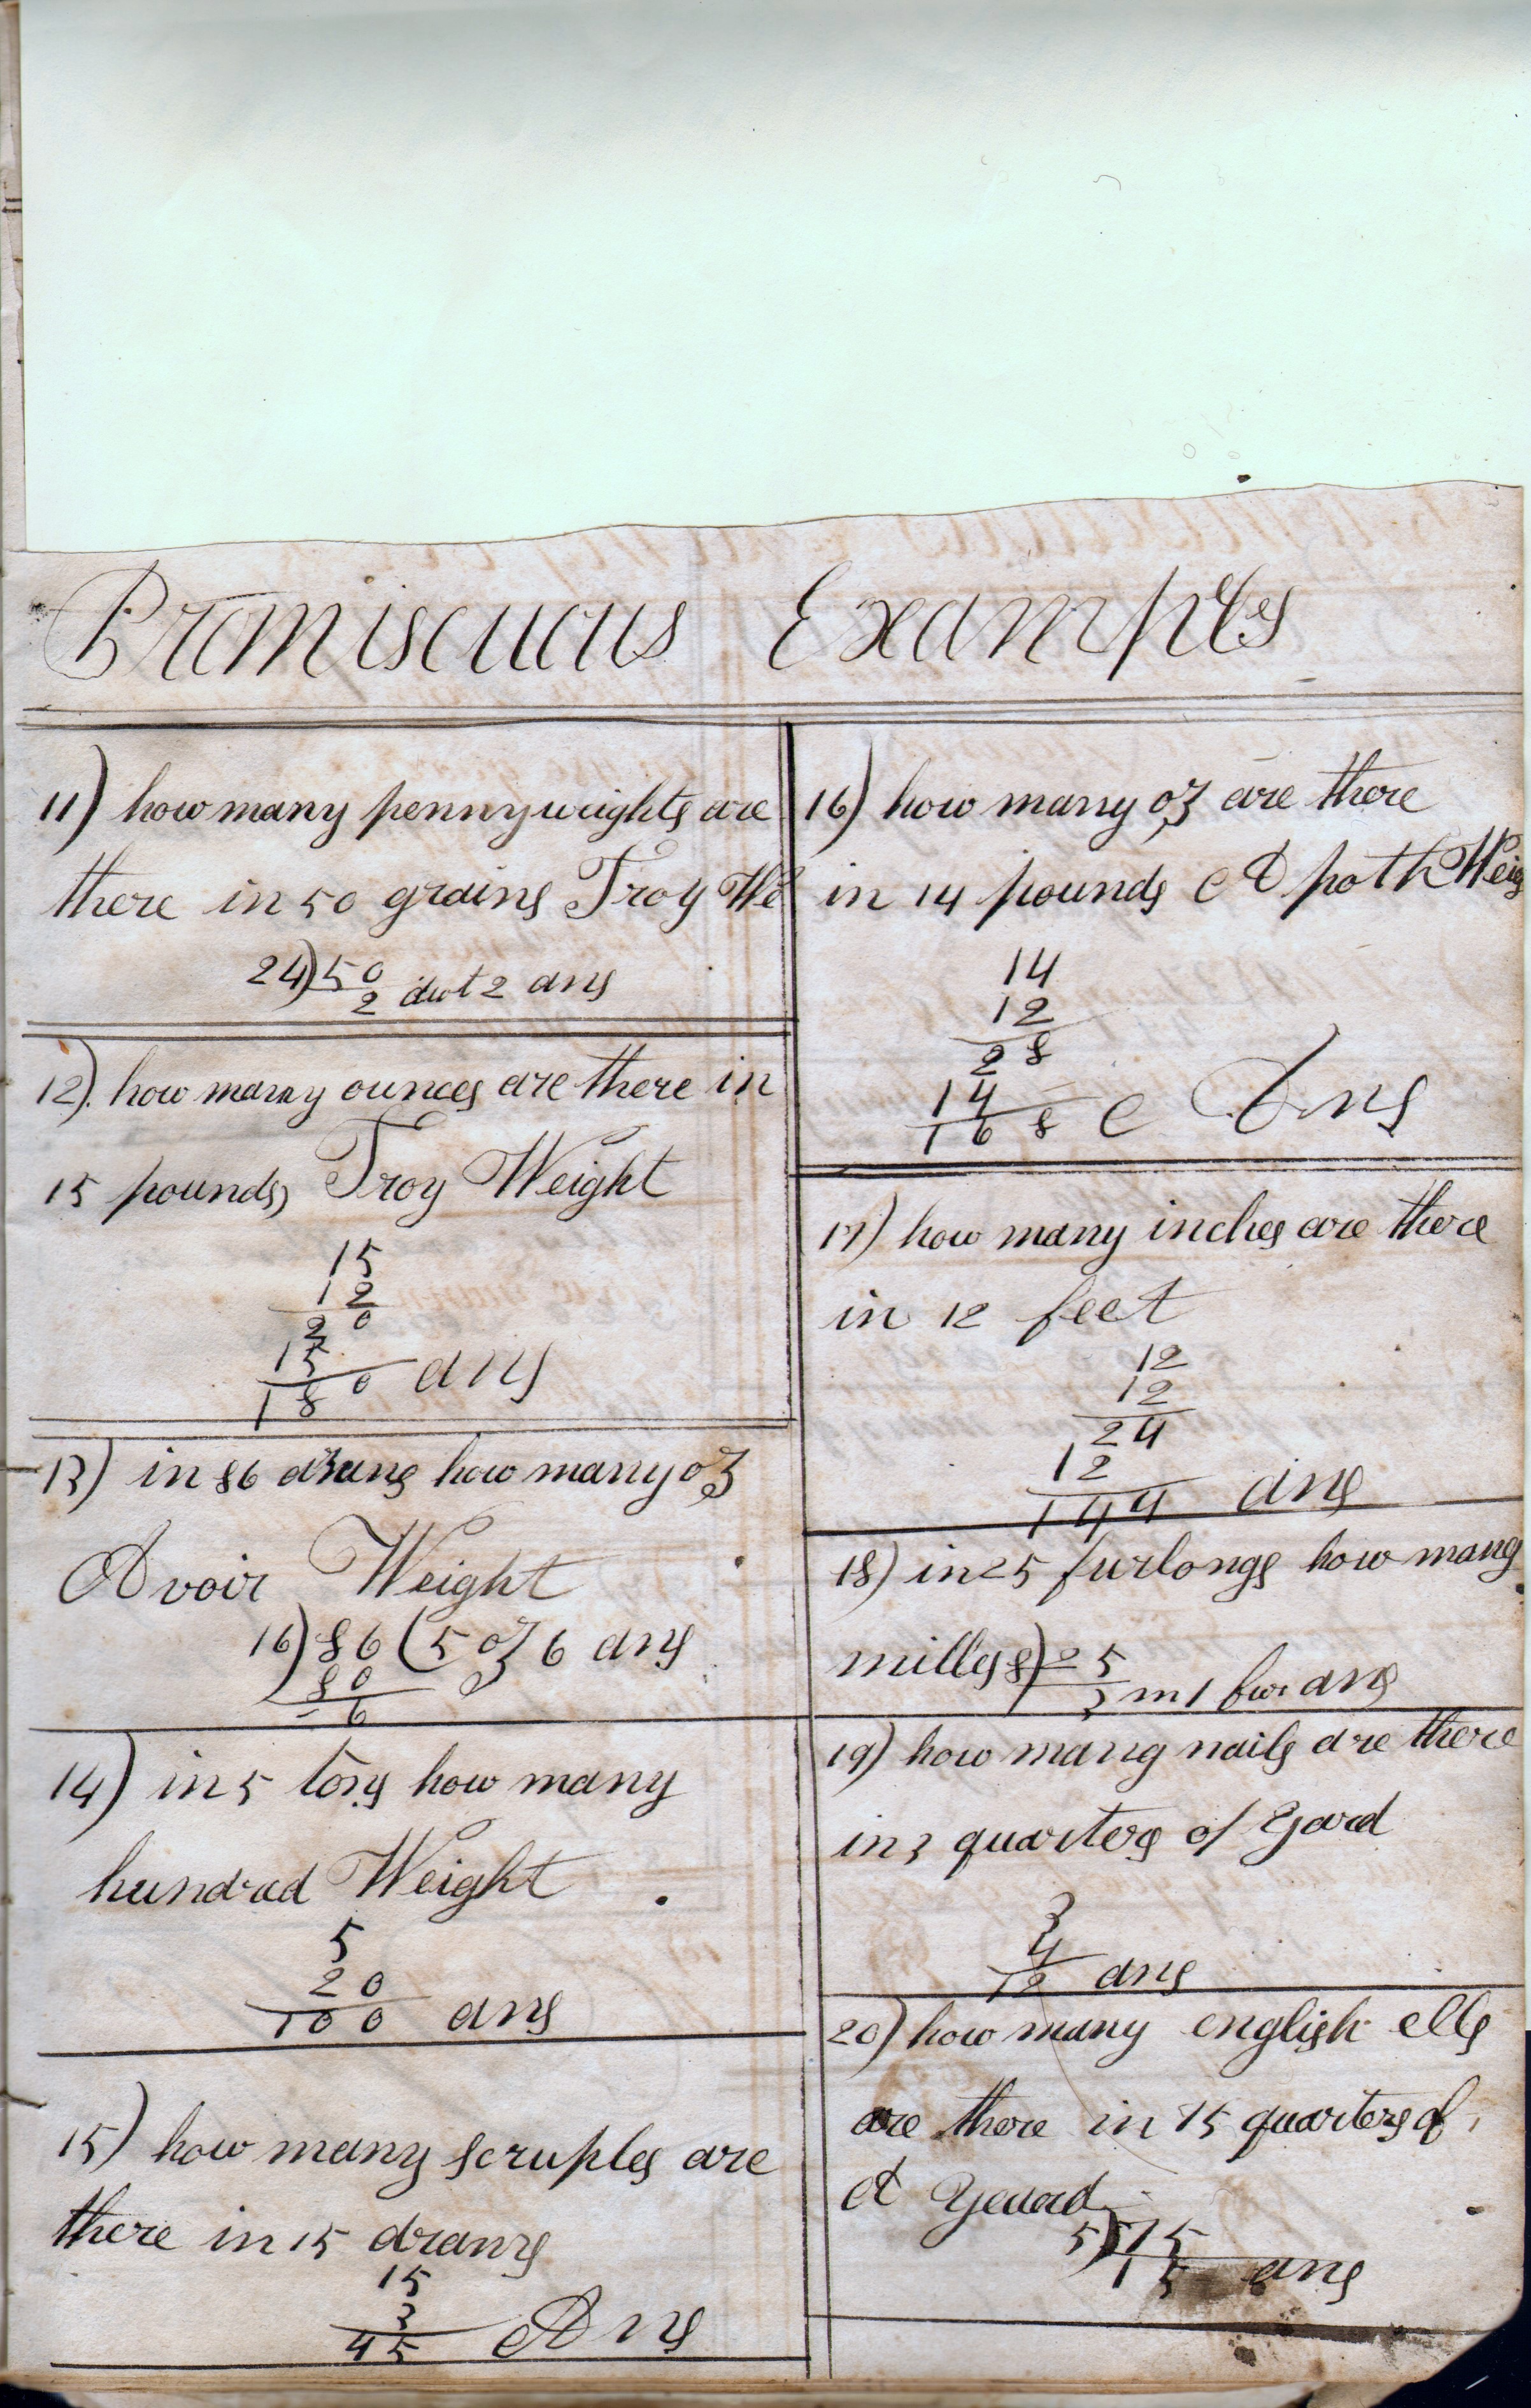 Promiscuous Examples
11) how many pennyweights are
there in 50 grains Troy We
24)50
2 dwt 2 ans
12). how many ounces are there in
15 pounds Troy Weight
15
12
20
15
180 ans
13) in 86 drams how many oz
Avoir Weight
16)86(5 oz 6 ans
80
6
14) in 5 tons how many
hundrad Weight
5
20
100 ans
15) how many scruples are
there in 15 drams
15
3
45 Ans
16) how many oz are there
in 14 pounds Apoth Weig
14
12
28
14
168 Ans
17) how many inches are there
in 12 feet
12
12
24
12
144 ans
18) in 25 furlongs how many
milles 8)25
3 m 1 fur ans
19) how many nails are there
in 3 quarters of Yard
3
4
12 ans
20) how many english ells
are there in 75 quarters of
A Yeard
5)75
15 ans